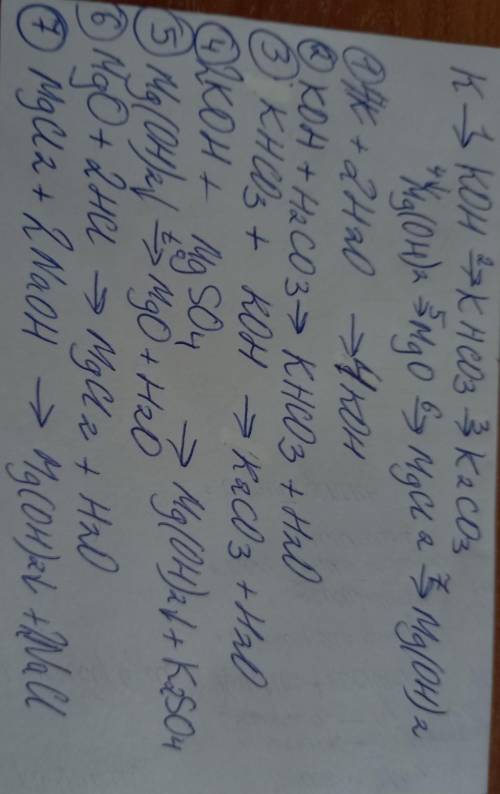 K →¹ KOH →² KHCO3 →³ K2CO3
4↓ Mg(OH)2 →⁵ MgO →⁶ MgCl2 →⁷ Mg(OH)2
① 4K + 2H2O → 4KOH
② KOH + H2CO3 → KHCO3 + H2O
③ KHCO3 + KOH → K2CO3 + H2O
④ 2KOH + MgSO4 → Mg(OH)2↓ + K2SO4
⑤ Mg(OH)2↓ →t° MgO + H2O
⑥ MgO + 2HCl → MgCl2 + H2O
⑦ MgCl2 + 2NaOH → Mg(OH)2↓ + 2NaCl